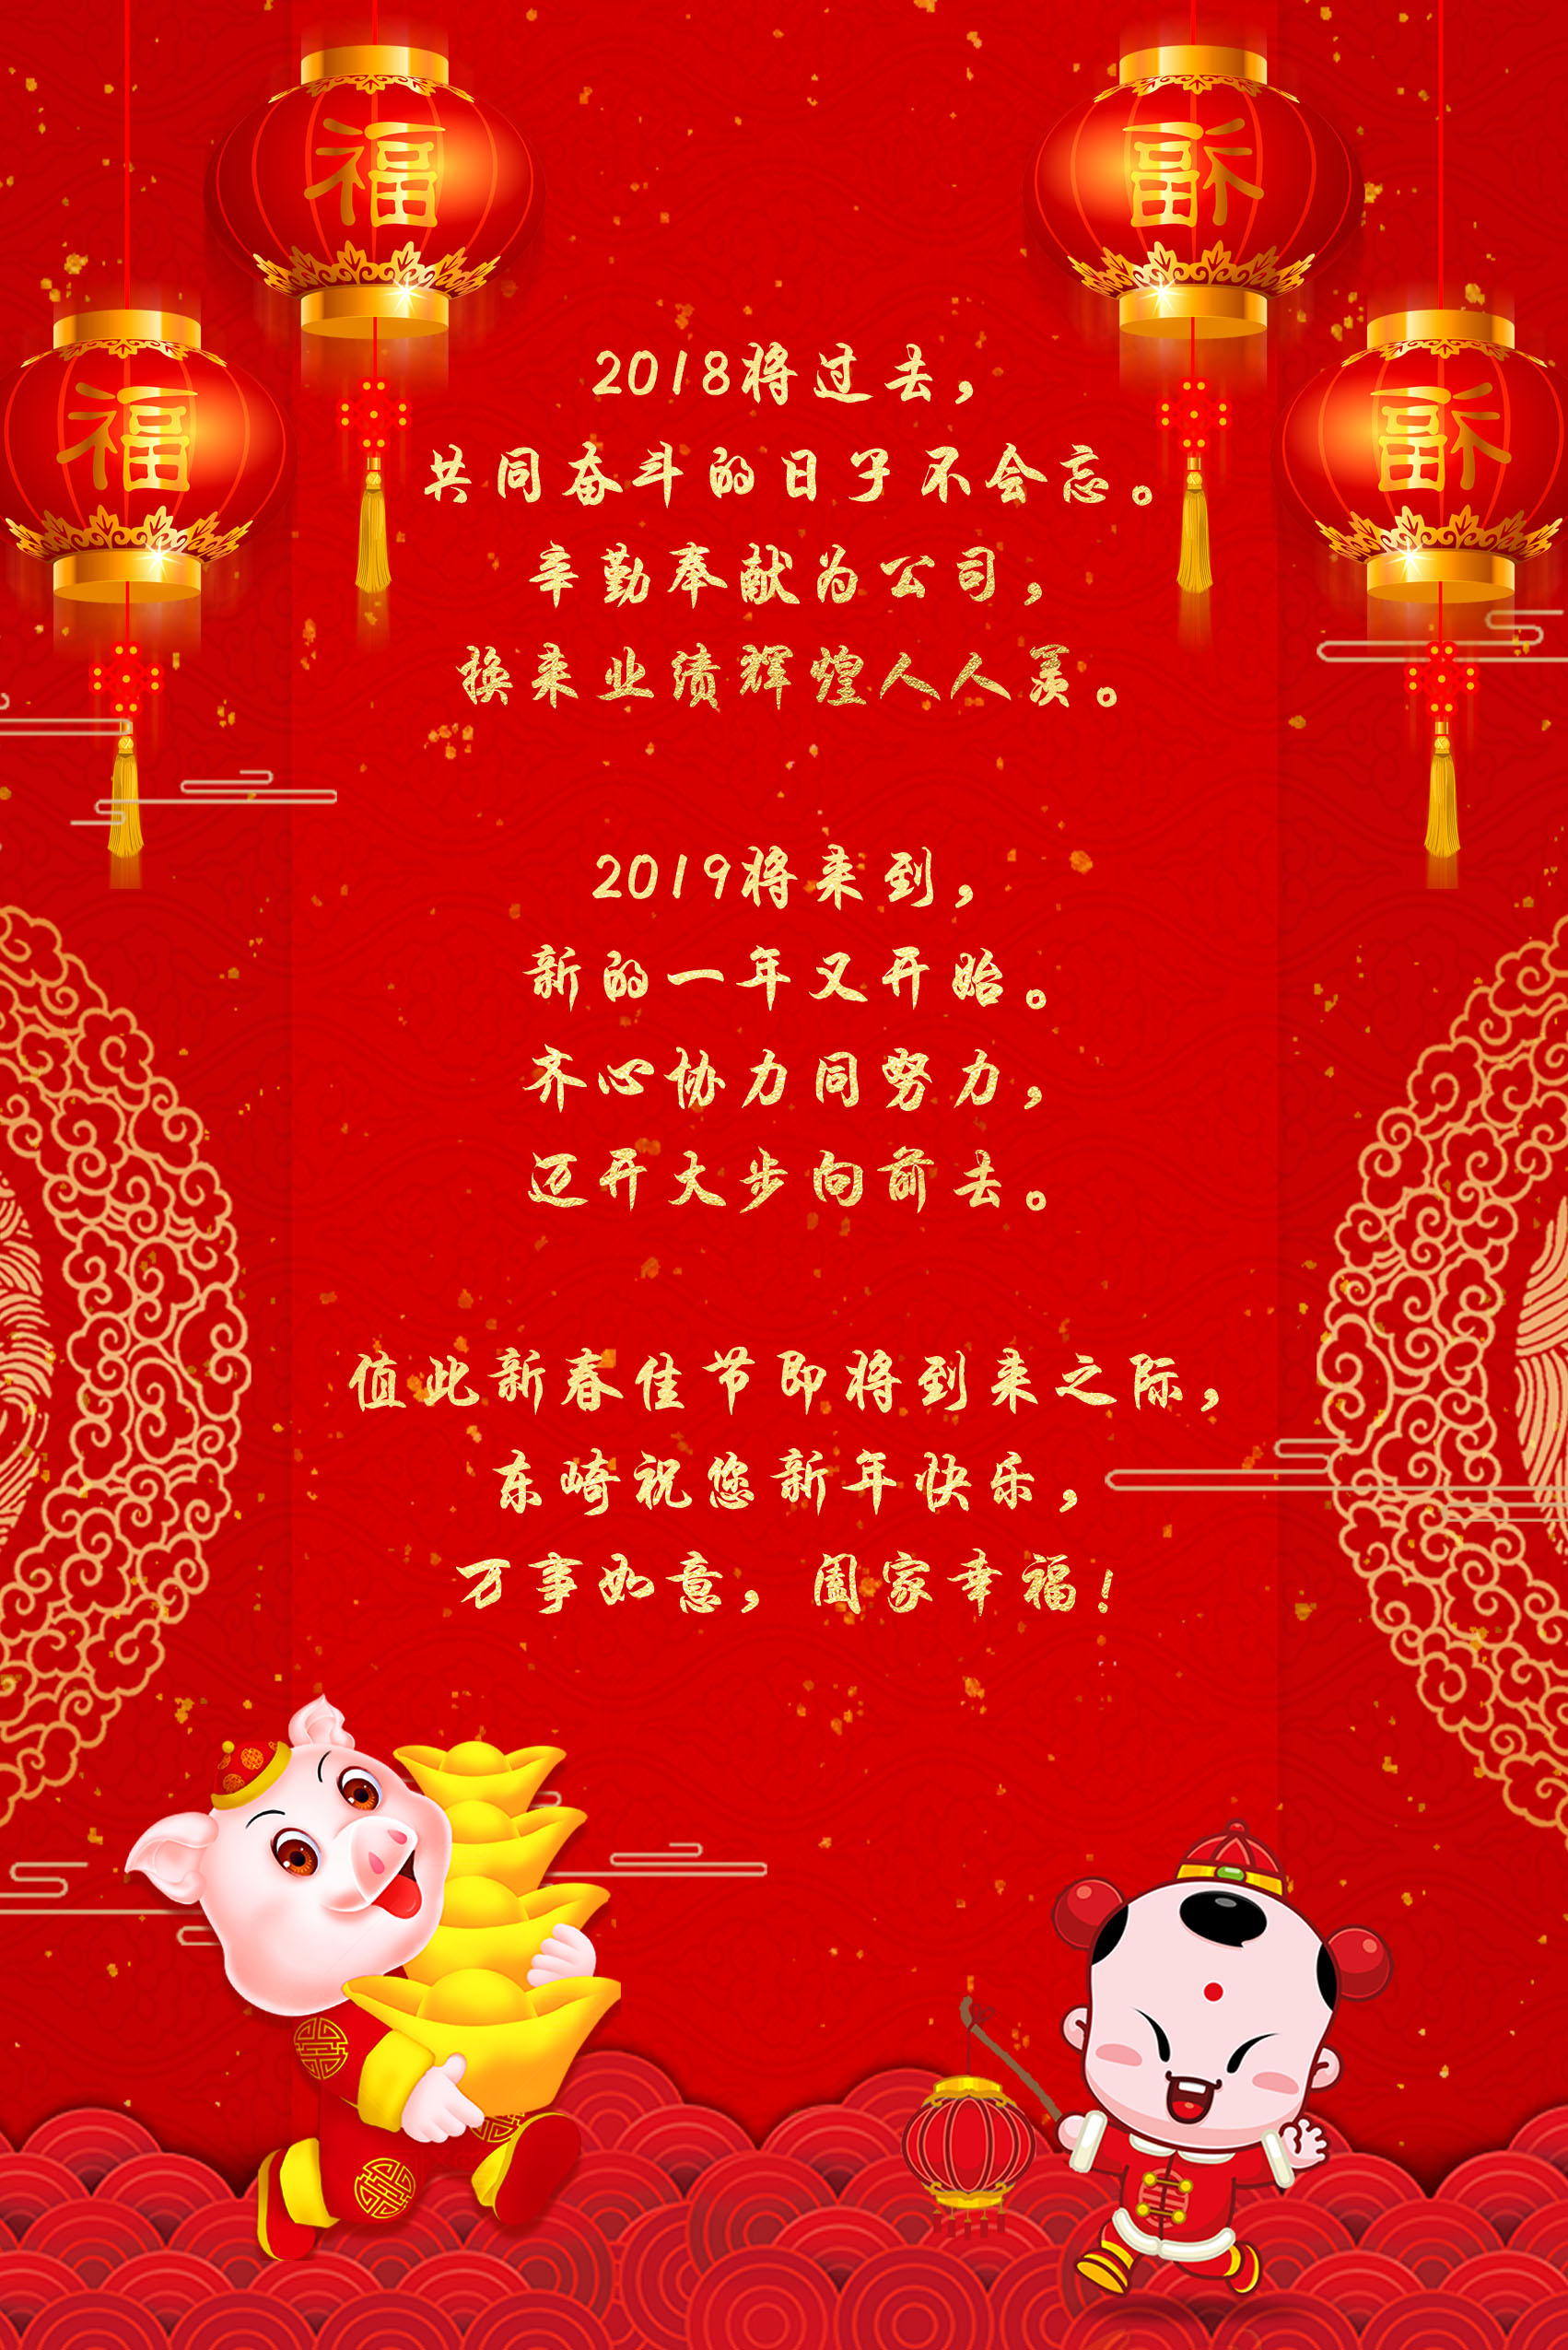 福
福
福
福
2018将过去，
共同奋斗的日子不会忘。
辛勤奉献为公司，
换来业绩辉煌人人羡。
2019将来到，
新的一年又开始。
齐心协力同努力，
迈开大步向前去。
值此新春佳节即将到来之际，
东崎祝您新年快乐，
万事如意，阖家幸福！